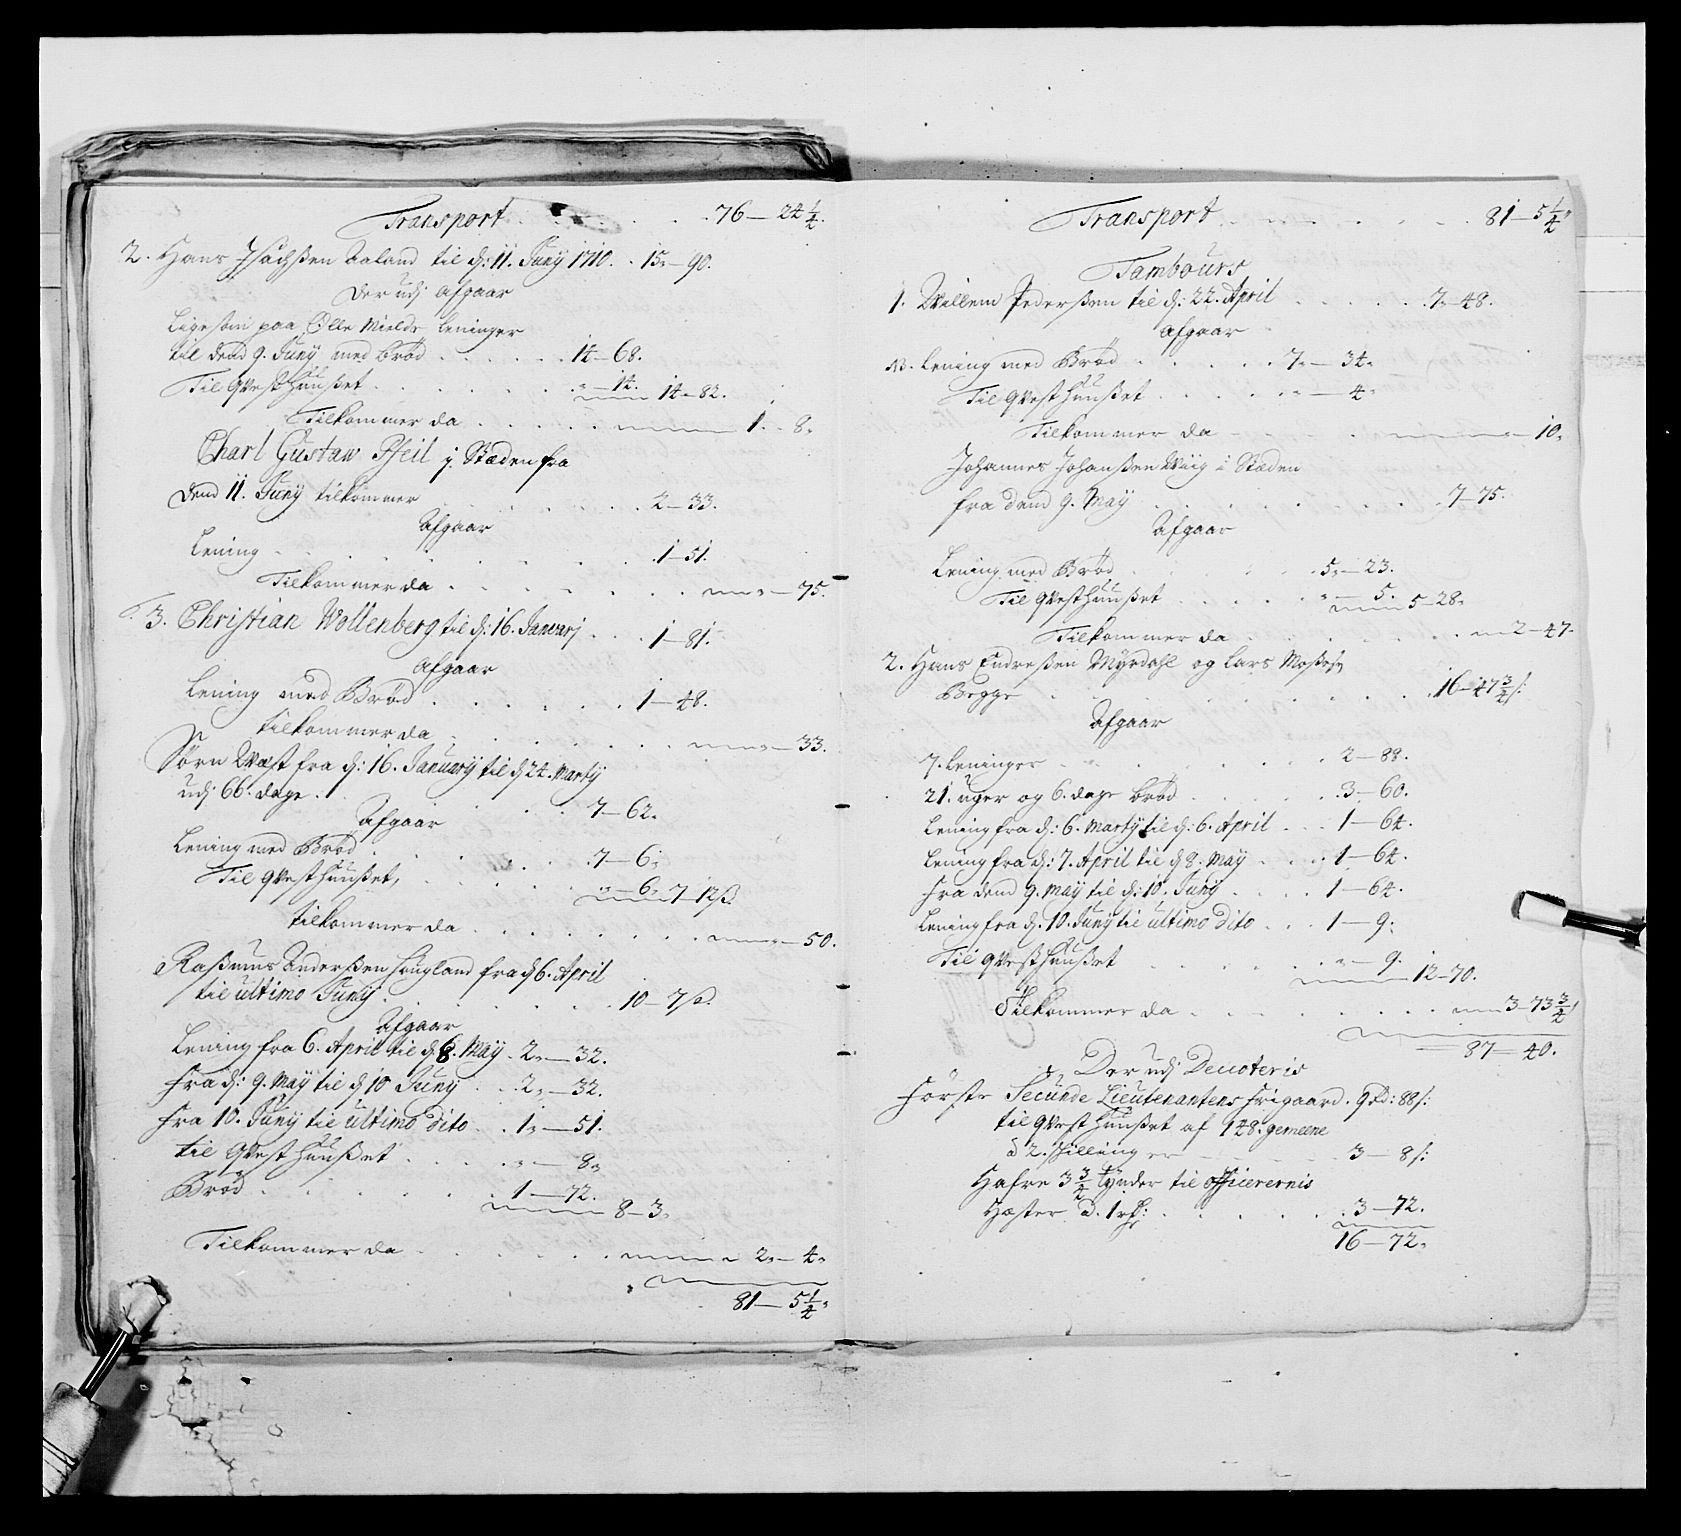 Transport . . . . . 76 — 24 1/2.
2. Hans Isachsen Aaland til d: 11. Juny 1710. . 15 — 90.
Der udj Afgaar
Ligesom paa Olle Mields Leninger
til dend 9. Juny med brød . . . . . 14 — 68.
Til Qvesthuusset . . . . . " — 14. 14 — 82.
Tilkommer da . . . . . 1. — 8.
Charl Gustaw Pfeil j Stæden fra
dend 11. Juny tilkommer . . . . . 2 — 33.
Afgaar
Lening . . . . . 1 — 51.
Tilkommer da . . . . . " — 75.
3. Christian Wollenberg til d: 16. Januarj . . . 1 — 81.
Afgaar
Lening med Brød . . . . . 1 — 48.
tilkommer da . . . . . " — 33.
Sørn Wæst fra d: 16. January til d 24. Marty
udj 66. dage . . . . . 7 — 62.
Afgaar
Lening med Brød . . . . . 7 — 6.
Til Qvesthuusset, . . . . . " — 6. 7 — 12 s.
tilkommer da . . . . . " — 50.
Rassmus Anderssen Hougland fra d 6. April
til ultimo Juny . . . . . 10 — 7 s.
Afgaar
Lening fra 6. April til d 8. May . 2 — 32.
Fra d: 9. May til d 10 Juny . . 2 — 32.
Fra 10. Juny til ultimo dito . . 1 — 51.
til Qvesthuusset . . . . " — 8.
Brød . . . . . 1 — 72.
8 — 3.
Tilkommer da . . . . . 2 — 4.
81 — 5 1/2.
Transport . . . . . 81 — 5 1/2
Tambours
1. Willem Pedersen til d: 22. April . . . . . 7 — 48.
Afgaar
Lening med Brød . . . . . 7 — 34.
Til Qvesthuusset . . . . " — 4.
Tilkommer da . . . . . " — 10.
Johannes Johanssen Wiig i Stæden
fra dend 9. May . . . . . 7 — 75.
Afgaar
Lening med Brød . . . . . 5 — 23.
Til Qvesthuusset . . . . . " — 5.
5 — 28.
Tilkommer da . . . . . 2 — 47.
2. Hans Endressen Myrdahl og Lars
Begge . . . . . 16 — 47 3/4 s:
Afgaar
7. Leninger . . . . . 2 — 88.
21. uger og 6. dage brød . . . . . 3 — 60.
Lening fra d: 6. Marty til d: 6. April . . . 1 — 64.
Lening fra d: 7. April til d 8. May . . . . 1 — 64.
Fra dend 9. May til d: 10. Juny . . . . 1 — 64.
Lening fra d 10. Juny til ultimo dito . . . 1 — 9.
Til Qvesthuusset . . . . . " — 9.
12 — 70.
Tilkommer da . . . . . 3 — 73 3/4 s
87 — 40.
Der udj Decoteris
Første Secunde Lieutenantens Frigaard . 9 rd: 88 s:
til Qvesthuusset af 148. gemeene
a 2. skilling er . . . . . 3 — 8 s:
Hafre 3 3/4 tynder til officerernis
Hæster a. 1 . . . . . 3 — 72.
16 — 72.